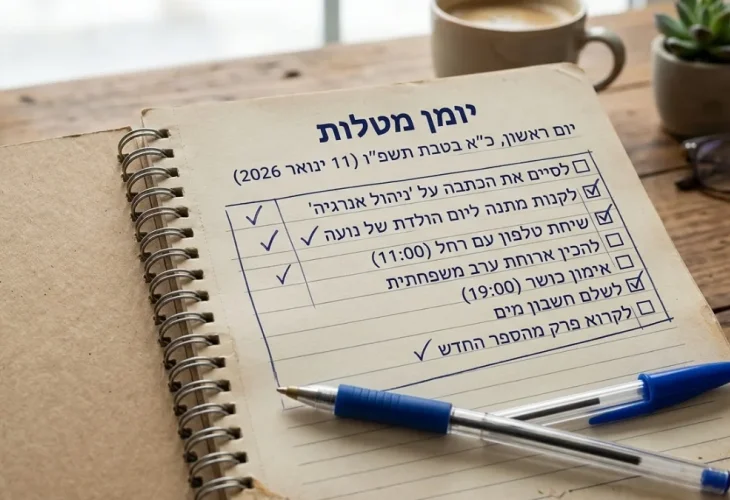 יומן מטלות
יום ראשון, כ"א בטבת תשפ"ו (11 ינואר 2026)
☐ לסיים את הכתבה על 'ניהול אנרגיה' ✓
☑ לקנות מתנה ליום הולדת של נועה ✓ ✓
☑ שיחת טלפון עם רחל (11:00) ✓
☐ להכין ארוחת ערב משפחתית
☐ אימון כושר (19:00)
☑ לשלם חשבון מים
☐ לקרוא פרק מהספר החדש ✓